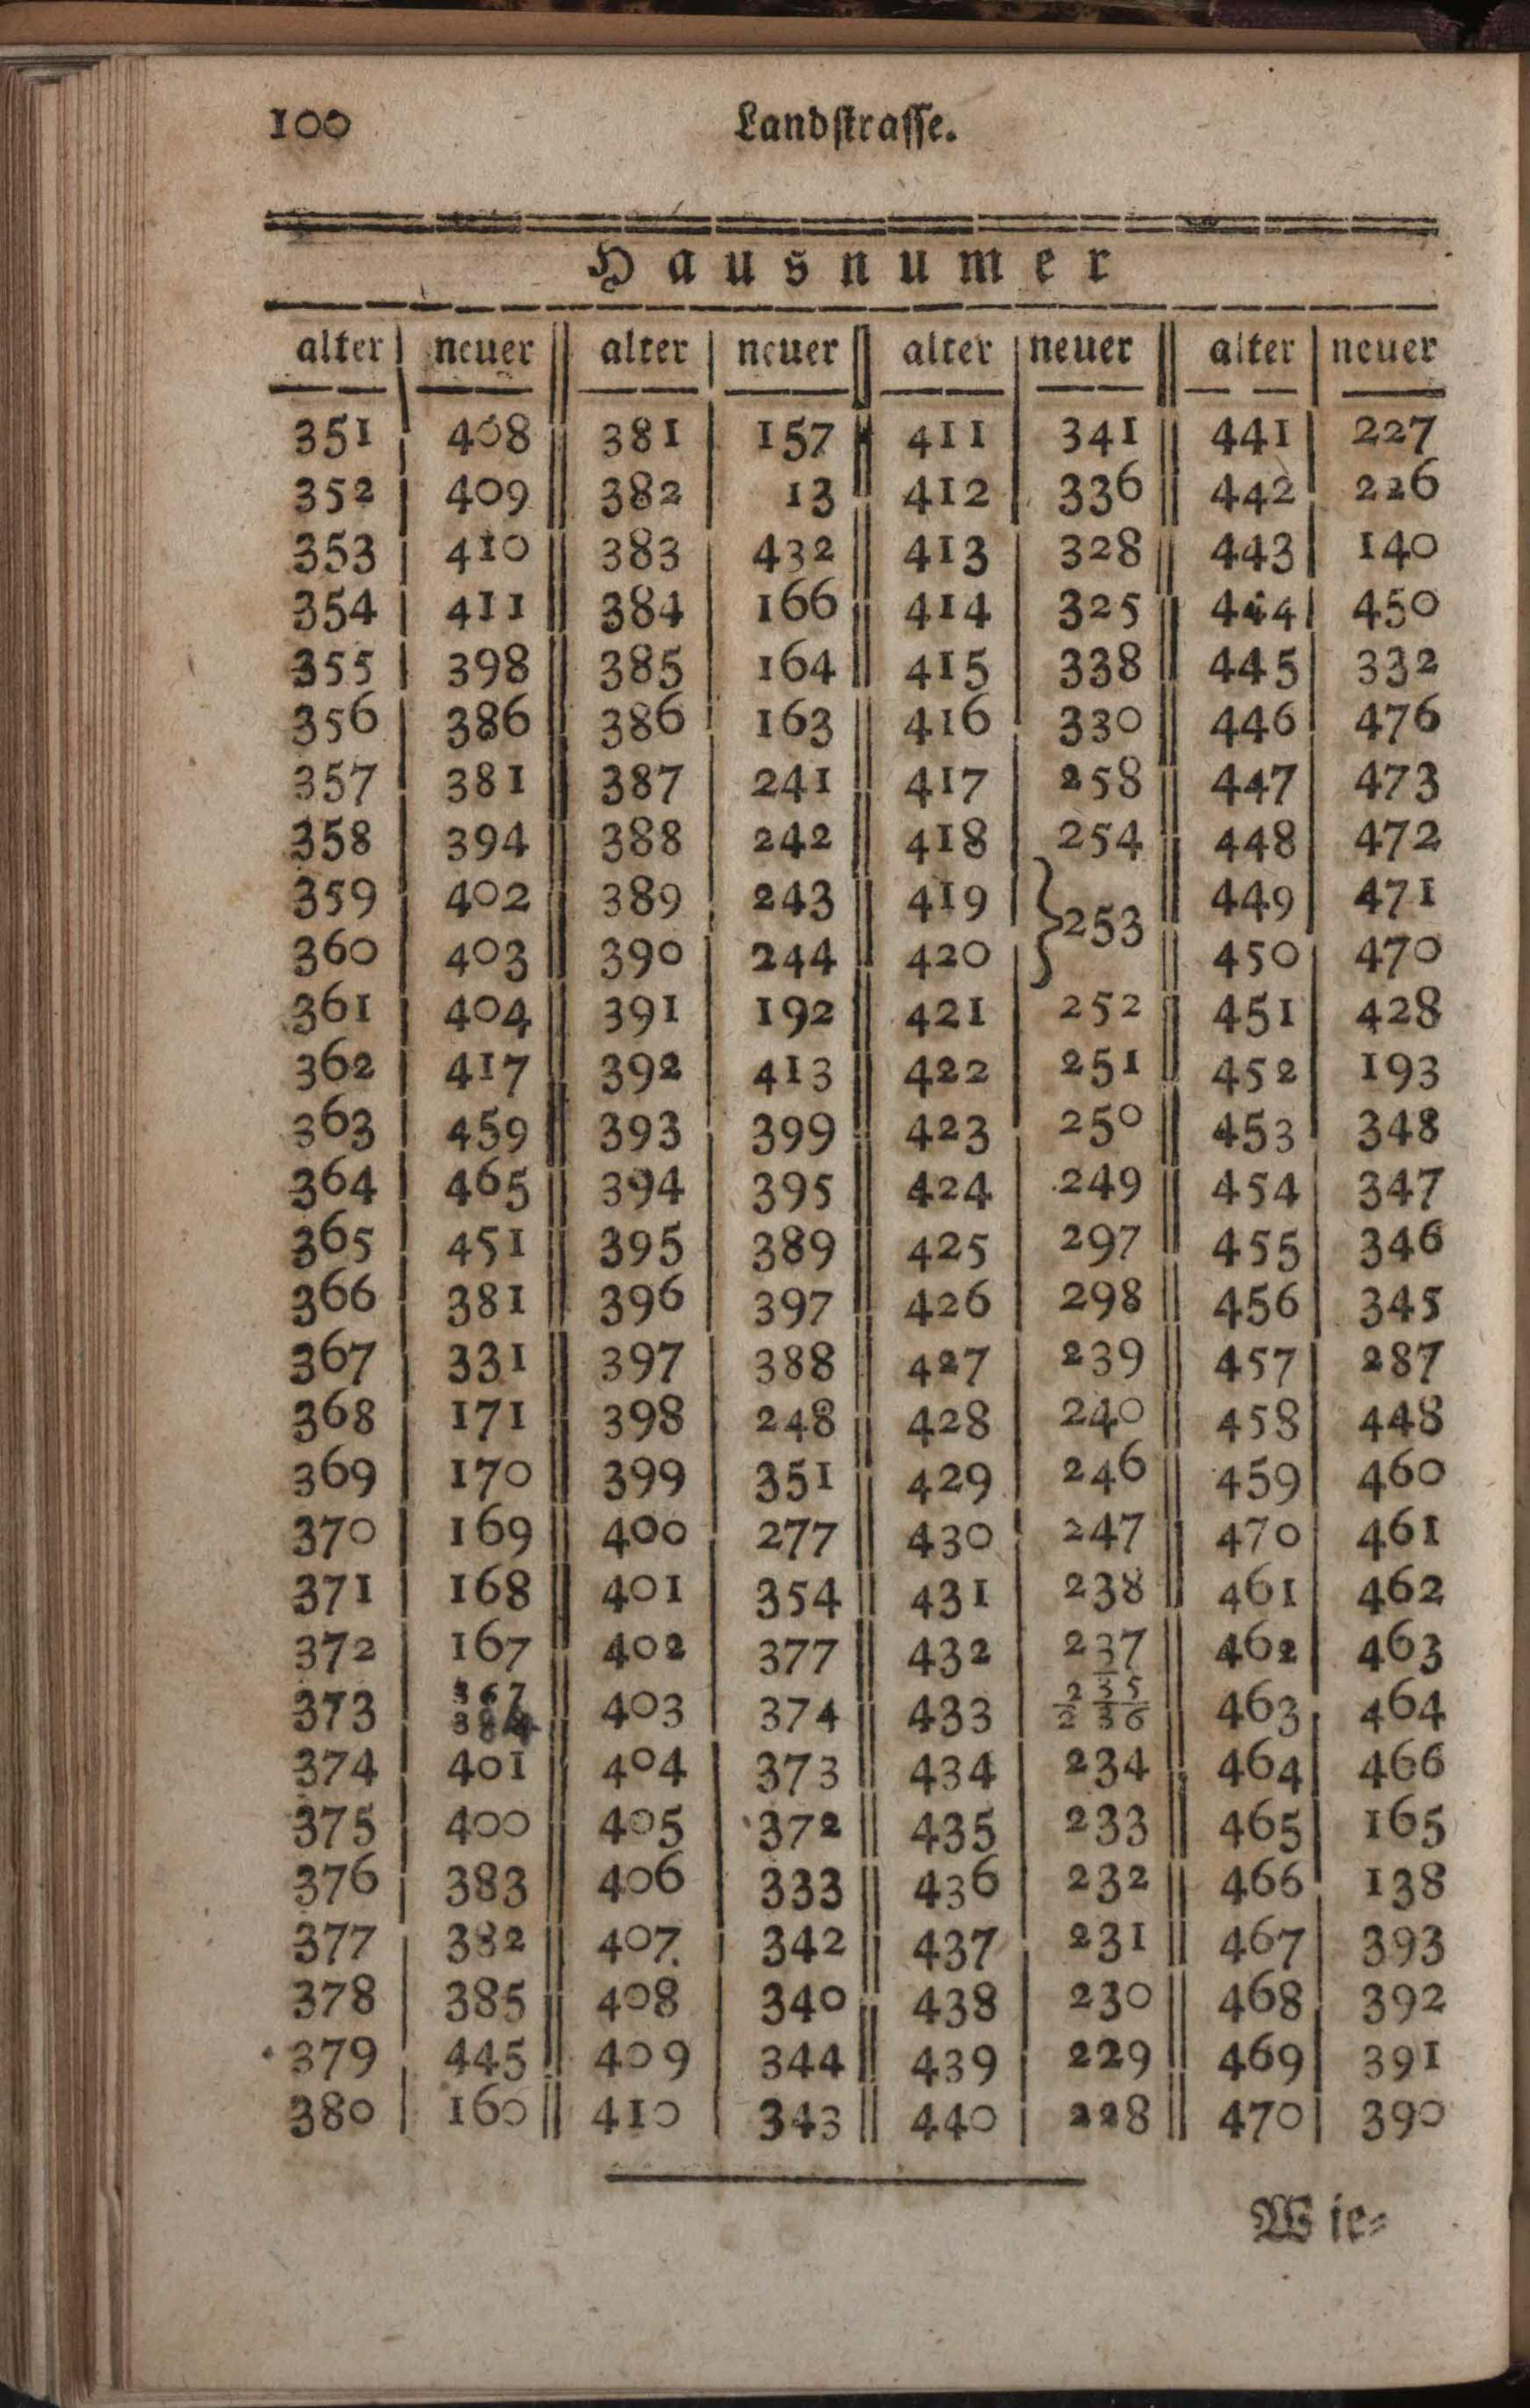 100 Landstrasse.
Hausnumer
alter neuer alter neuer alter neuer alter neuer
351 408 381 157 411 341 441 227
352 409 382 13 412 336 442 226
353 410 383 432 413 328 443 140
354 411 384 166 414 325 444 450
355 398 385 164 415 338 445 332
356 386 386 163 416 330 446 476
357 381 387 241 417 258 447 473
358 394 388 242 418 254 448 472
359 402 389 243 419 } 253 449 471
360 403 390 244 420 450 470
361 404 391 192 421 252 451 428
362 417 392 413 422 251 452 193
363 459 393 399 423 250 453 348
364 465 394 395 424 249 454 347
365 451 395 389 425 297 455 346
366 381 396 397 426 298 456 345
367 331 397 388 427 239 457 287
368 171 398 248 428 240 458 448
369 170 399 351 429 246 459 460
370 169 400 277 430 247 470 461
371 168 401 354 431 238 461 462
372 167 402 377 432 237 462 463
373 367 403 374 433 235 236 463 464
374 401 404 373 434 234 464 466
375 400 405 372 435 233 465 165
376 383 406 333 436 232 466 138
377 382 407 342 437 231 467 393
378 385 408 340 438 230 468 392
379 445 409 344 439 229 469 391
380 160 410 343 440 228 470 390
Wie-